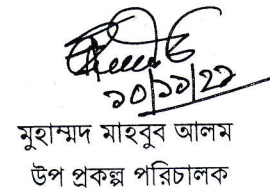 ১০/১১/২২
মুহাম্মদ মাহবুব আলম
উপ প্রকল্প পরিচালক